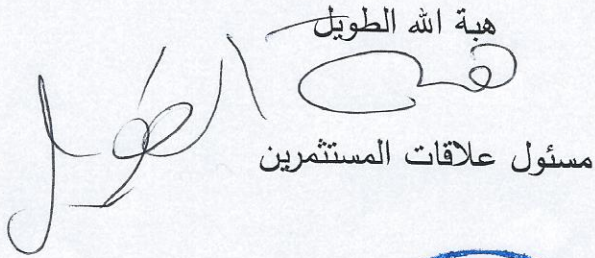 هبة الله الطويل
هبة الطويل
مسئول علاقات المستثمرين